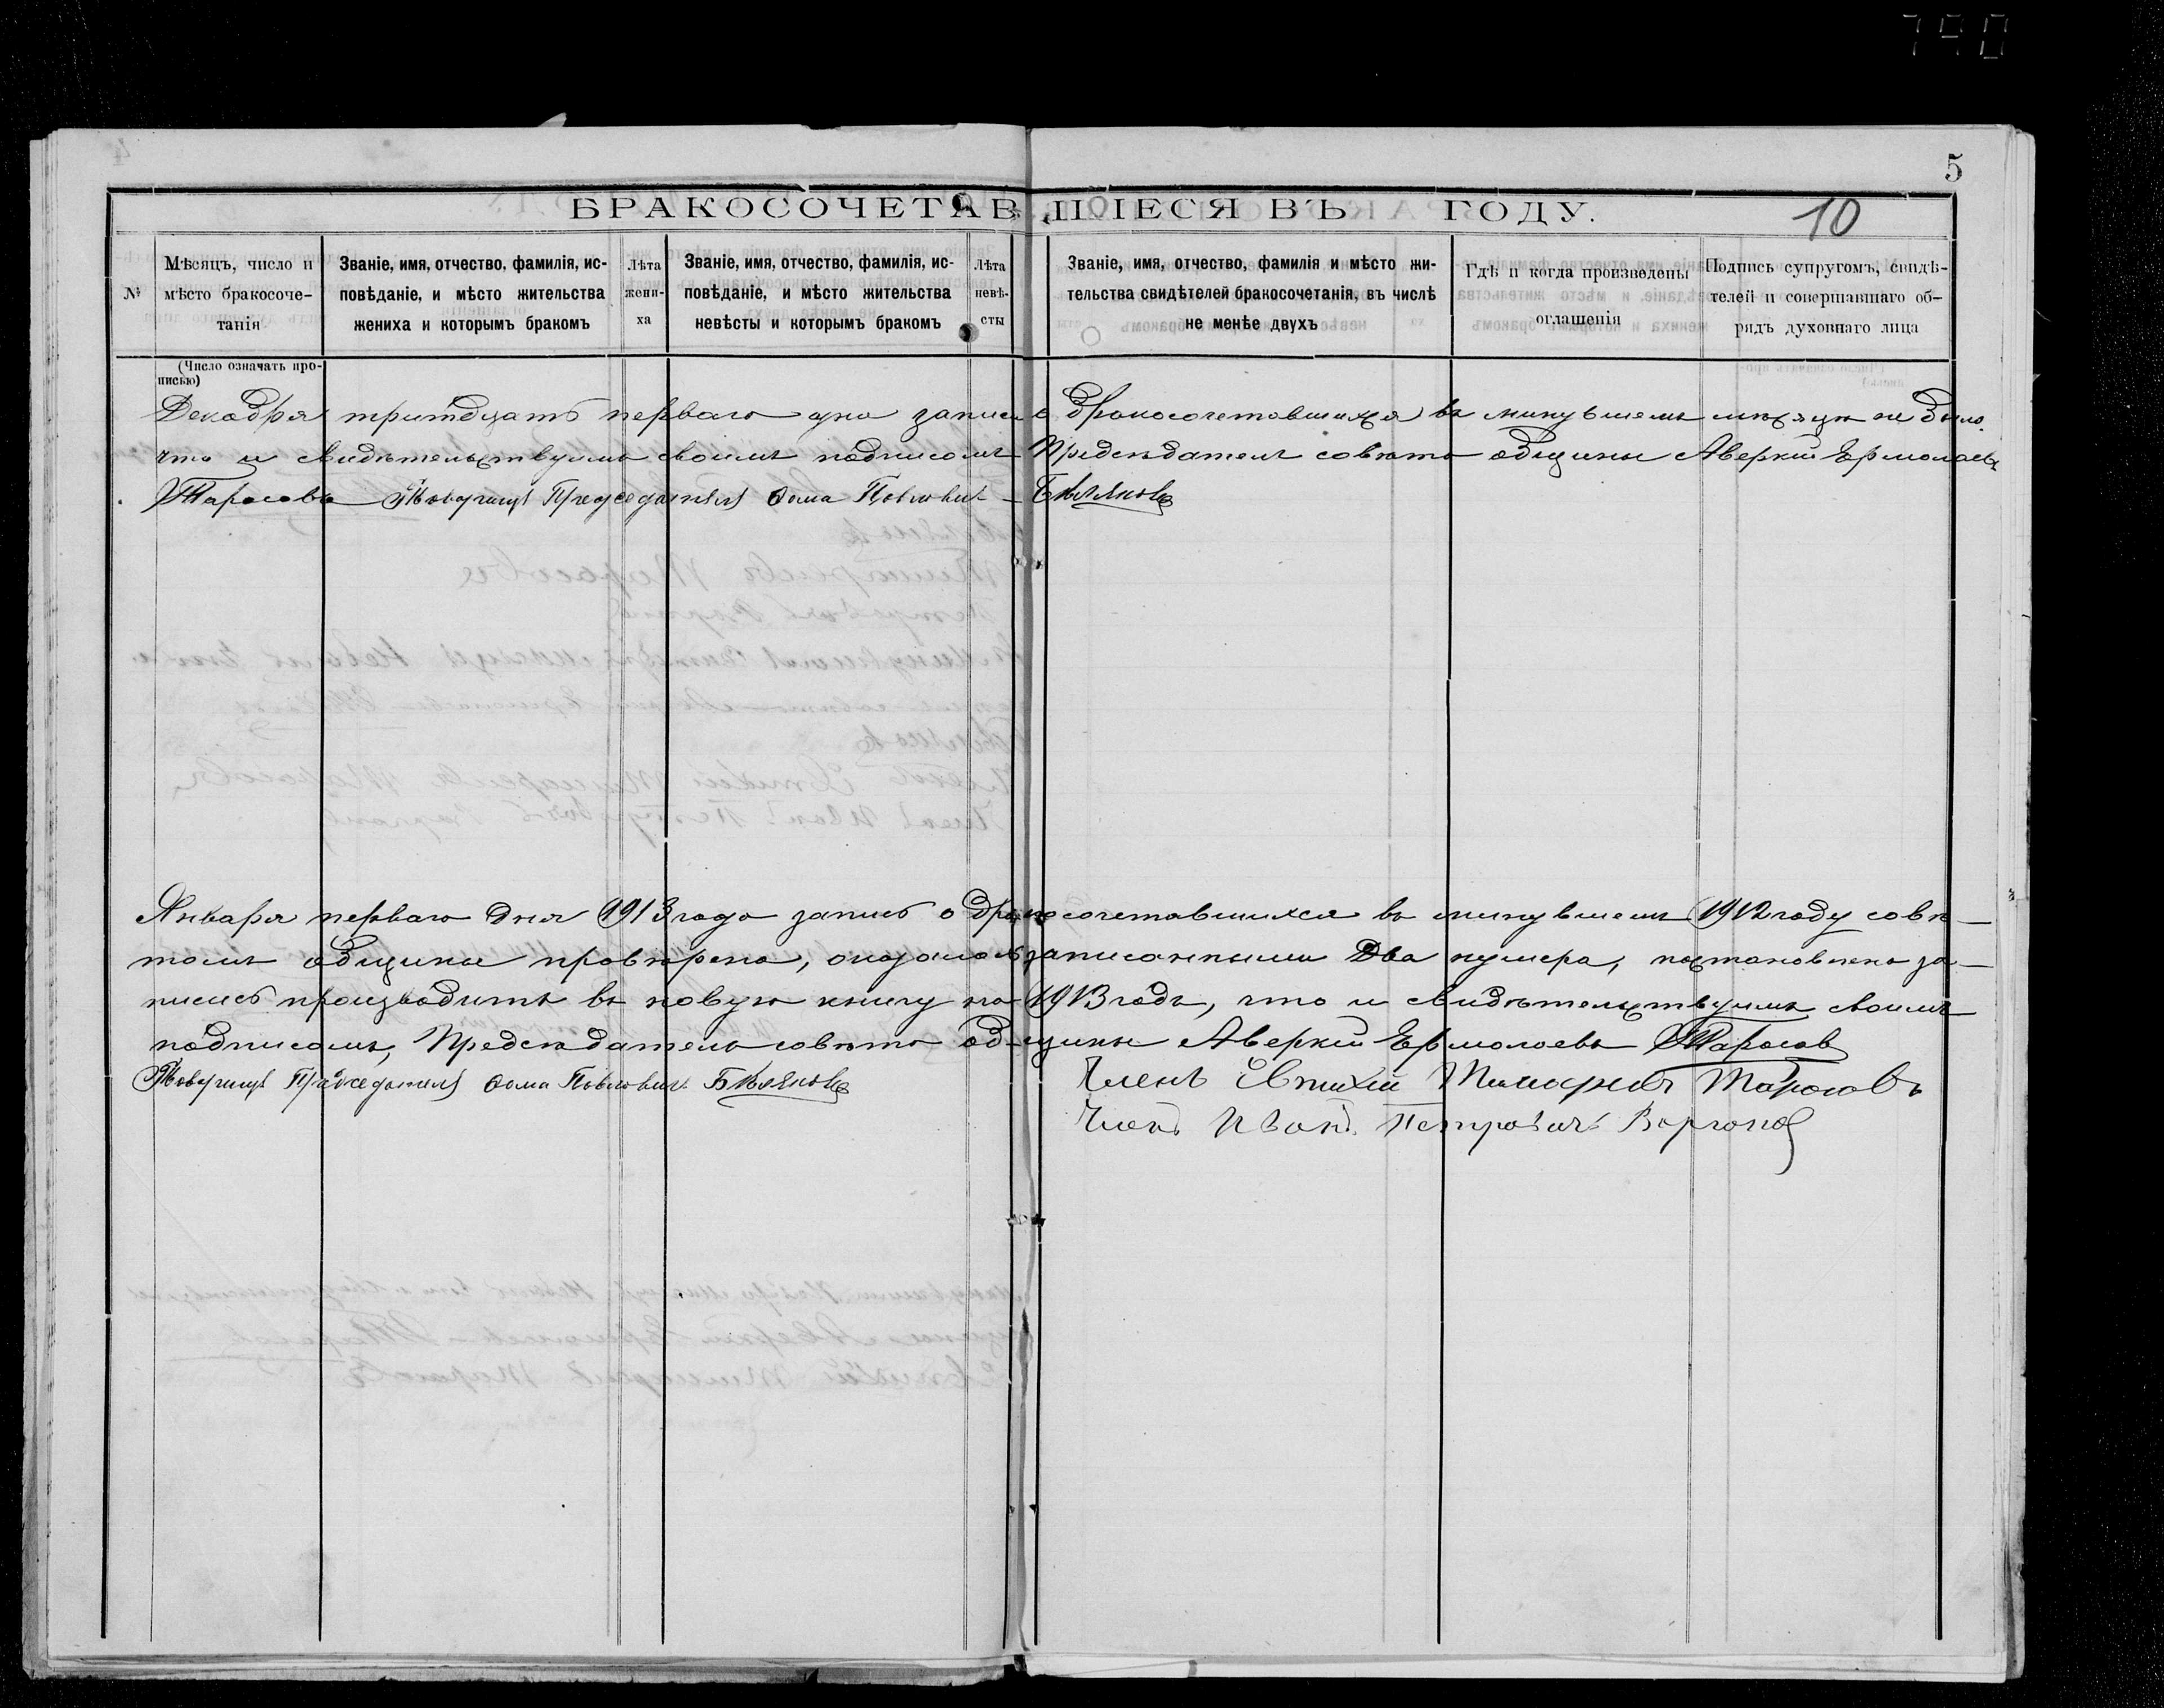 790
5
БРАКОСОЧЕТАВШІЕСЯ ВЪ ГОДУ.
10
№
Мѣсяцъ, число и
мѣсто бракосоче-
танія
Званіе, имя, отчество, фамилія, ис-
повѣданіе, и мѣсто жительства
жениха и которымъ бракомъ
Лѣта
жени-
ха
Званіе, имя, отчество, фамилія, ис-
повѣданіе, и мѣсто жительства
невѣсты и которымъ бракомъ
Лѣта
невѣ-
сты
Званіе, имя, отчество, фамилія и мѣсто жи-
тельства свидѣтелей бракосочетанія, въ числѣ
не менѣе двухъ
Гдѣ и когда произведены
оглашенія
Подпись супругомъ, свидѣ-
телей и совершавшаго об-
рядъ духовнаго лица
(Число означать про-
писью)
Декабря тритцать перваго дня записи о бракосочетавшихся въ минувшемъ мѣсяцѣ не было.
что и свидѣтельствуимъ своимъ подписомъ Предсѣдатель совѣта общины Аверкій Ермолаевъ
Тарасовъ Товарищъ Председателя Фома Павловичъ Бѣляковъ
Января перваго дня 1913 года запись о бракосочетавшихся въ минувшемъ 1912 году совѣ-
томъ общины провѣрена, оказалось записанными два нумера, постановлено за-
пись производить въ новую книгу на 1913 годъ, что и свидѣтельствуимъ своимъ
подписомъ, Предсѣдатель совѣта общины Аверкій Ермолаевъ Тарасов
Товарищъ Председателя Фома Павловичъ Бѣляковъ
Членъ Евтихій Тарасовъ
Членъ Иванъ Петровичъ